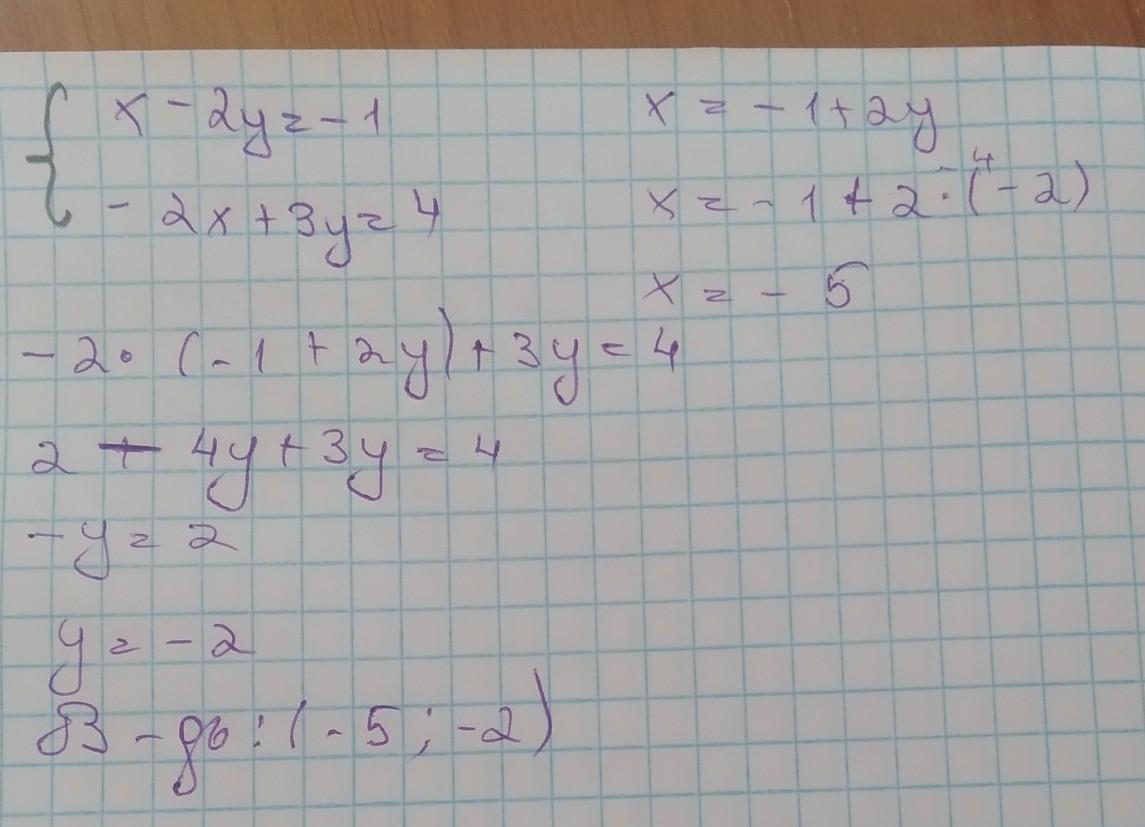 x - 2y = -1
- 2x + 3y = 4
x = - 1 + 2y
x = - 1 + 2 · (- 2)
-4
x = - 5
- 2 · (- 1 + 2y) + 3y = 4
2 - 4y + 3y = 4
- y = 2
y = - 2
В-дь: (- 5; -2)